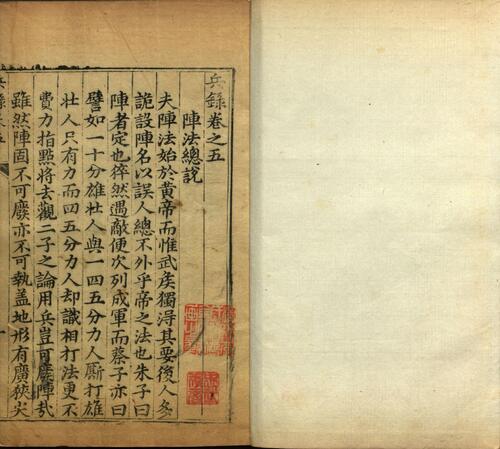 兵錄卷之五
陣法總說
夫陣法始於黃帝而惟武矦獨得其要後人多
詭設陣名以誤人總不外乎帝之法也朱子曰
陣者定也猝然遇敵便次列成軍而蔡子亦曰
譬如一十分雄壯人與一四五分力人厮打雄
壯人只有力而四五分力人却識相打法更不
費力指點將去觀二子之論用兵豈可廢陣哉
雖然陣固不可廢亦不可執盖地形有廣狹尖
兵錄